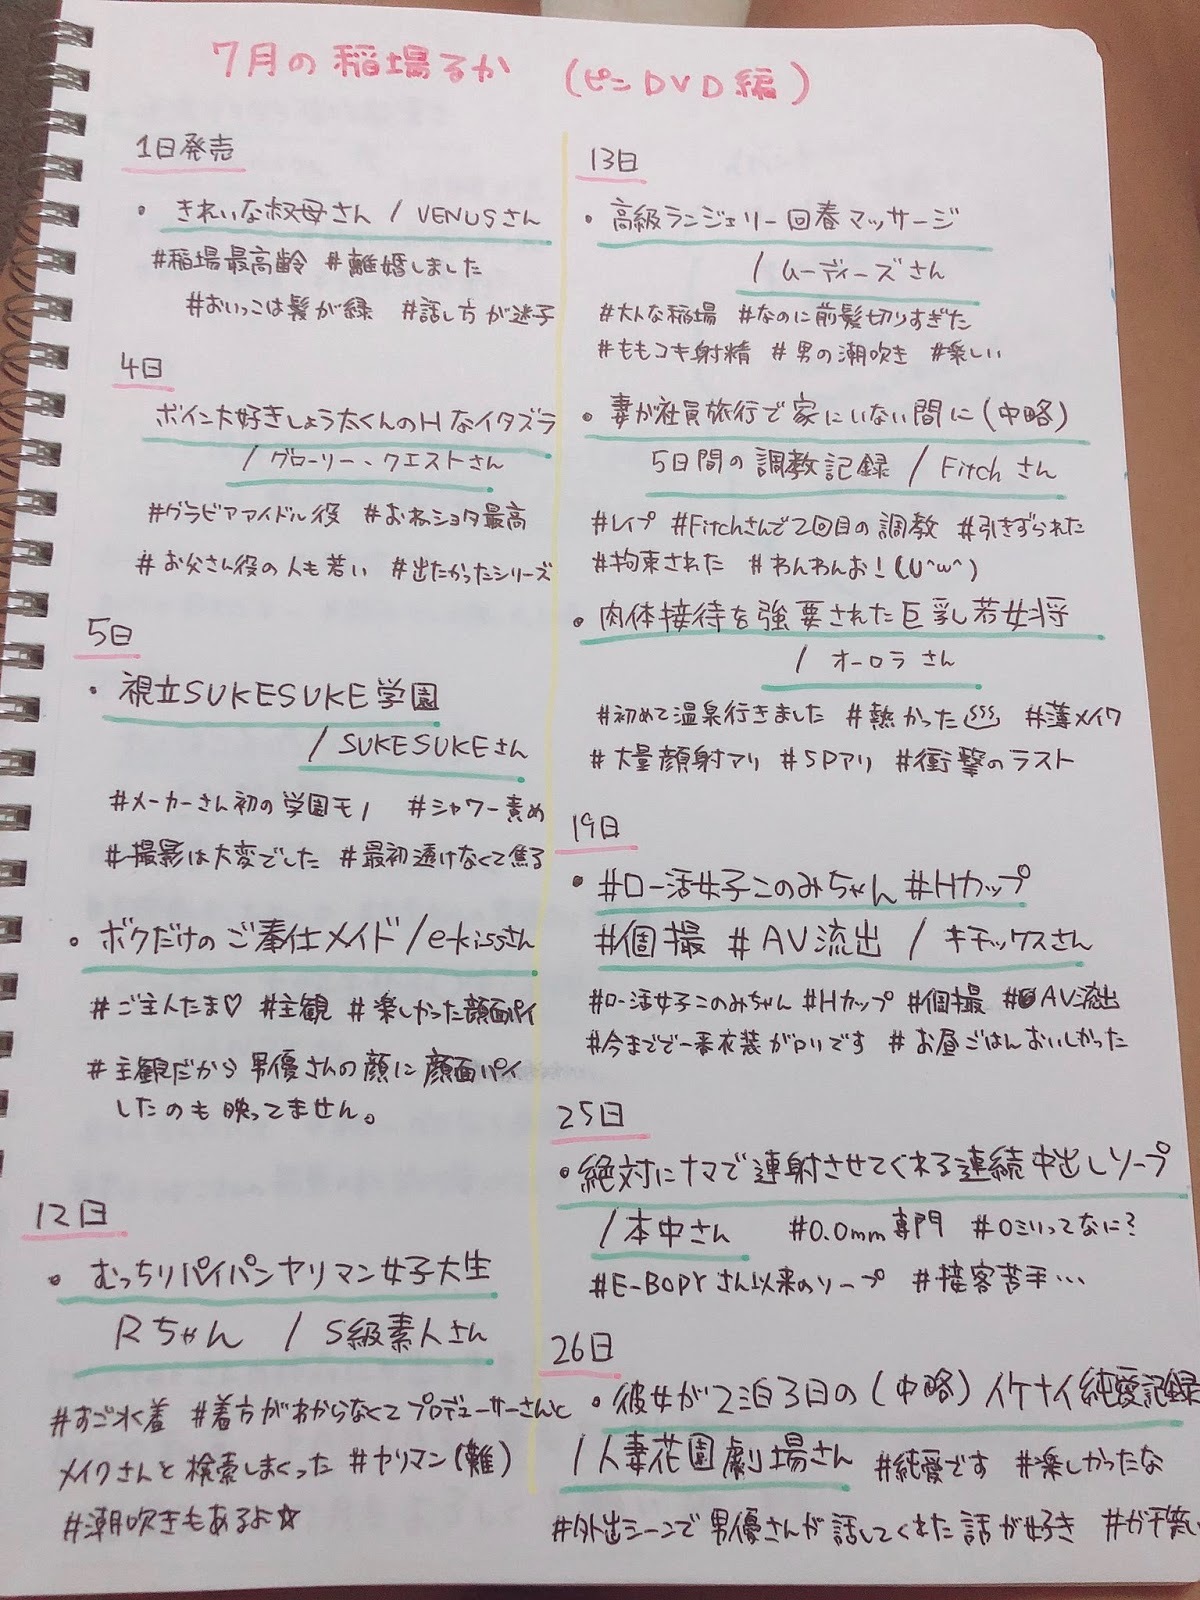 7月の稲場るか (ピンDVD編)
1日発売
・きれいな叔母さん / VENUSさん
#稲場最高齢 #離婚しました
#おいっこは髪が緑 #話し方が迷子
4日
ボイン大好きしょう太くんのHなイタズラ
/ グローリークエストさん
#グラビアアイドル役 #おねショタ最高
#お父さん役の人も若い #出たかったシリーズ
5日
・視立SUKESUKE学園
/ SUKESUKEさん
#メーカーさん初の学園モノ #シャワー責め
#撮影は大変でした #最初透けなくて焦る
・ボクだけのご奉仕メイド/e-kissさん
#ご主人たま♡ #主観 #楽しかった顔面パイ
#主観だから男優さんの顔に顔面パイ
したのも映ってません。
12日
・むっちりパイパンヤリマン女子大生
Rちゃん / S級素人さん
#すご水着 #着方がわからなくてプロデューサーさんと
メイクさんと検索しまくった #ヤリマン(難)
#潮吹きもあるよ☆
13日
・高級ランジェリー回春マッサージ
/ ムーディーズさん
#大人な稲場 #なのに前髪切りすぎた
#ももコキ射精 #男の潮吹き #楽しい
・妻が社員旅行で家にいない間に(中略)
5日間の調教記録 / Fitchさん
#レイプ #Fitchさんで2回目の調教 #引きずられた
#拘束された #わんわんお!(U^w^)
・肉体接待を強要された巨乳若女将
/ オーロラさん
#初めて温泉行きました #熱かった♨ #薄メイク
#大量顔射アリ #SPアリ #衝撃のラスト
19日
・#ロー活女子このみちゃん #Hカップ
#個撮 #AV流出 / キチックスさん
#ロー活女子このみちゃん #Hカップ #個撮 #AV流出
#今までで一番衣装がロリです #お昼ごはんおいしかった
25日
・絶対にナマで連射させてくれる連続中出しソープ
/ 本中さん #0.0mm専門 #0ミリってなに?
#E-BODYさん以来のソープ #接客苦手…
26日
・彼女が2泊3日の(中略)イケナイ純愛記録
/ 人妻花園劇場さん #純愛です #楽しかったな
#外出シーンで男優さんが話してくれた話が好き #ガチ笑い